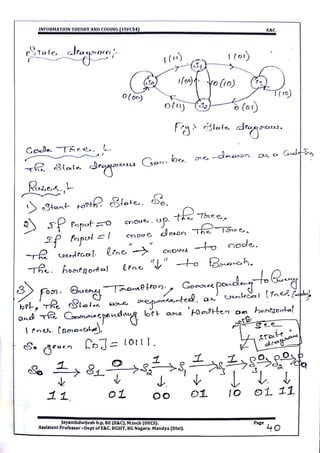 INFORMATION THEORY AND CODING (15EC54) E&C.
State diagram:-
1(11) S1 1(01)
1(00) 0(10) S3
0(00) S2 1(10)
0(11) 0(01)
Fig: State diagram.
Code Tree :-
The State diagram Can be re-drawn as a Code-Tree
Rules :-
1) Start with State. S0.
2) If input = 0 move up the Tree.
If input = 1 move down The Tree.
The vertical line "→" moves to node.
The horizontal line "↓" to Branch.
3) For Every Transition, Corresponding to Every
bit, The States are represented as vertical lines (nodes)
and The Corresponding bit are Written on horizontal
lines (branches).
See
State
diagram
So given [D] = 10111.
S0 1 S1 0 S2 1 S1 1 S3 1 S3 0 S2 0 S0
11 01 00 01 10 01 11
Jayanthdwijesh h.p, BE (E&C), M.tech (DECE).
Assistant Professor – Dept of E&C. BGSIT, BG Nagara, Mandya (Dist).
Page
40